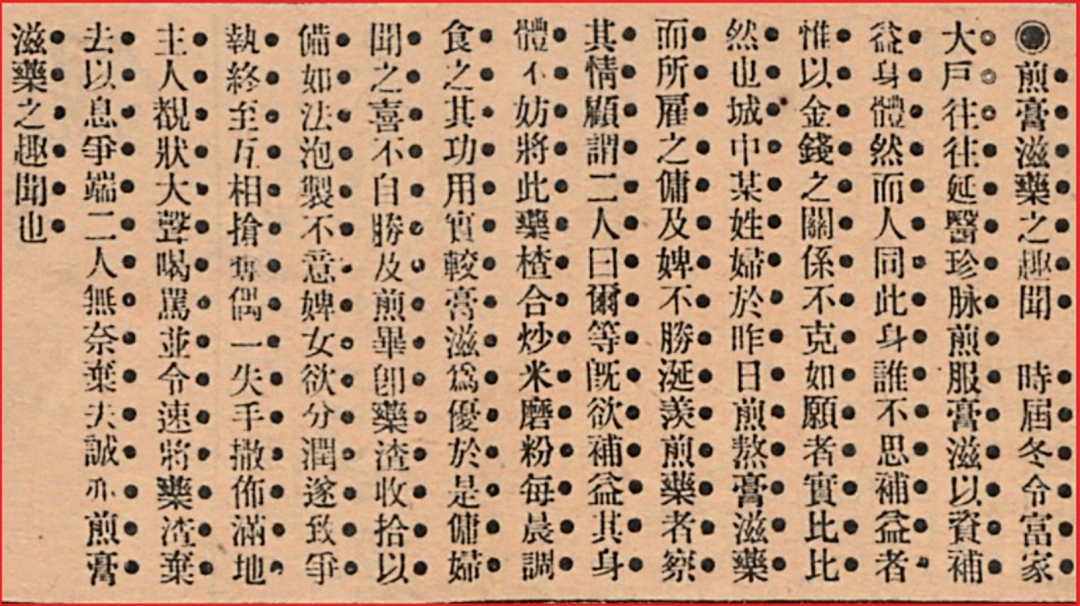 ◉煎膏滋藥之趣聞　時屆冬令富家
大戶往往延醫珍脉煎服膏滋以資補
益身體然而人同此身誰不思補益者
惟以金錢之關係不克如願者實比比
然也城中某姓婦於昨日煎熬膏滋藥
而所雇之傭及婢不勝涎羨煎藥者察
其情顧謂二人曰爾等旣欲補益其身
體不妨將此藥楂合炒米磨粉每晨調
食之其功用實較膏滋爲優於是傭婦
聞之喜不自勝及煎畢卽藥渣收拾以
備如法泡製不意婢女欲分潤遂致爭
執終至互相搶奪偶一失手撒佈滿地
主人覩狀大聲喝罵並令速將藥渣棄
去以息爭端二人無奈棄去誠亦煎膏
滋藥之趣聞也